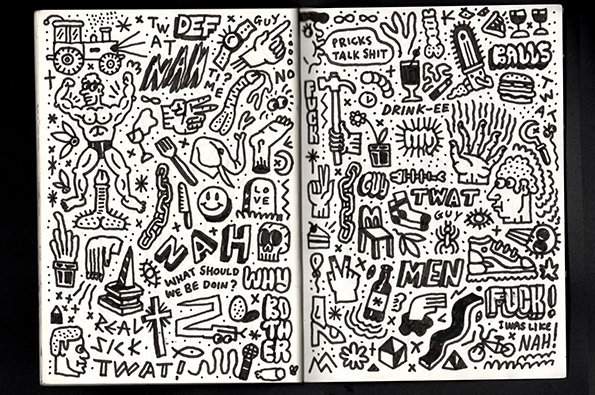 TW
AT
DEF
GUY
NAH
NO
LOVE
NAH
WHAT SHOULD
WE BE DOIN?
WHY
BOTHER
REAL
SICK
TWAT!
PRICKS
TALK SHIT
BALLS
DRINK-EE
TWAT
GUY
TWAT
GUY
MEN
FUCK!
I WAS LIKE
NAH!